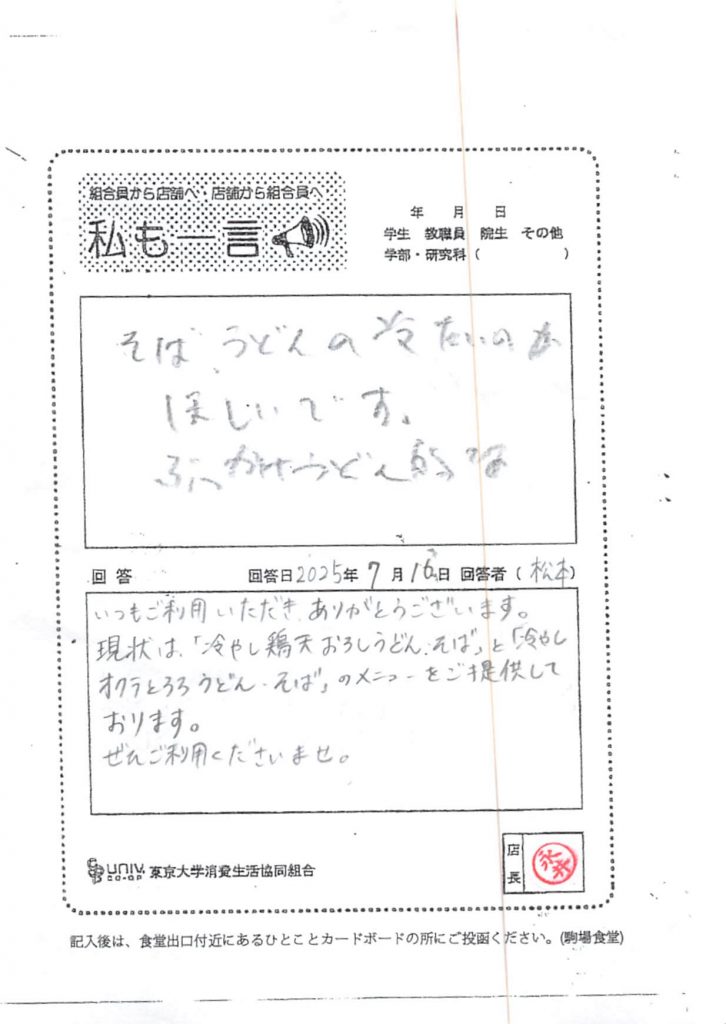 組合員から店舗へ・店舗から組合員へ
私も一言
年 月 日
学生 教職員 院生 その他
学部・研究科( )
そば うどんの冷たいのが
ほしいです。
ぶっかけうどん
回答 回答日2025年7月16日 回答者(松本)
いつもご利用いただき、ありがとうございます。
現状は、「冷やし鶏天おろしうどん・そば」と「冷やし
オクラとろろうどん・そば」のメニューをご提供して
おります。
ぜひご利用くださいませ。
UNIV. CO-OP 東京大学消費生活協同組合
店長
記入後は、食堂出口付近にあるひとことカードボードの所にご投函ください。(駒場食堂)